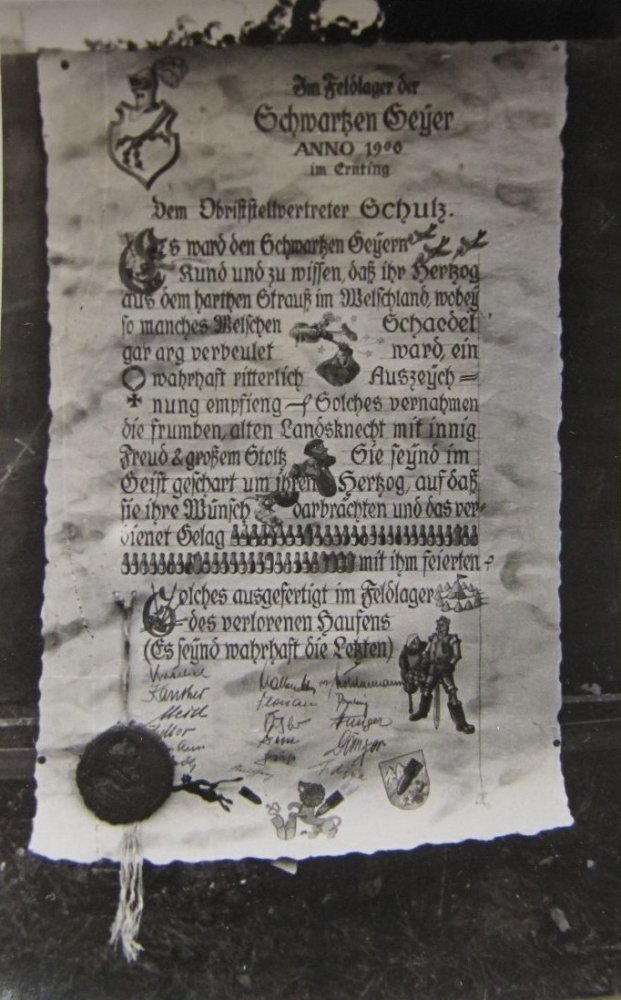 Im Feldlager der
Schwartzen Geyer
ANNO 1900
im Ernting
Dem Obriststellvertreter Schulz.
Es ward den Schwartzen Geyern
Kund und zu wissen, daß ihr Hertzog
aus dem harthen Strauß im Welschland, wobey
so manches Welschen Schaedel
gar arg verbeulet ward, ein
wahrhaft ritterlich Auszeych=
nung empfieng Solches vernahmen
die frumben, alten Landsknecht mit innig
Freud & großem Stoltz Sie seynd im
Geist geschart um ihren Hertzog, auf daß
sie ihre Wünsch darbrächten und das ver-
dienet Gelag
mit ihm feierten
Solches ausgefertigt im Feldlager
des verlorenen Haufens
(Es seynd wahrhaft die Letzten)